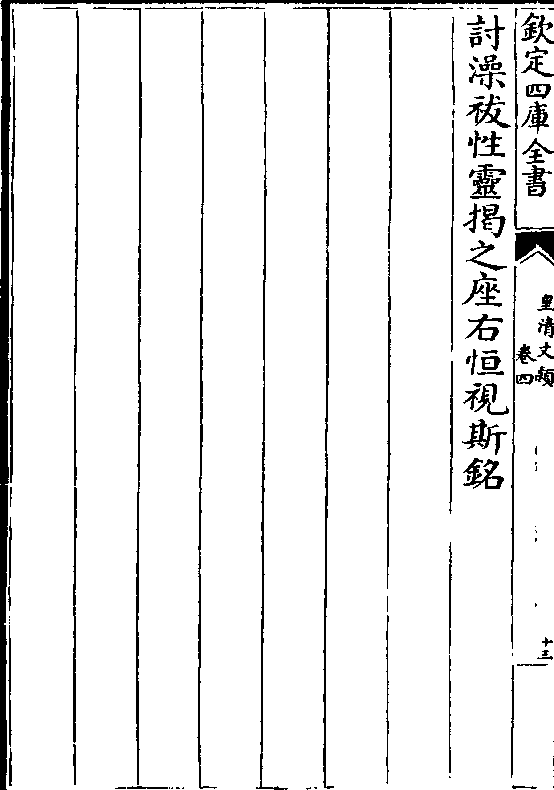 欽定四庫全書
皇清文穎
卷四
十三
討澡祓性靈揭之座右恒視斯銘